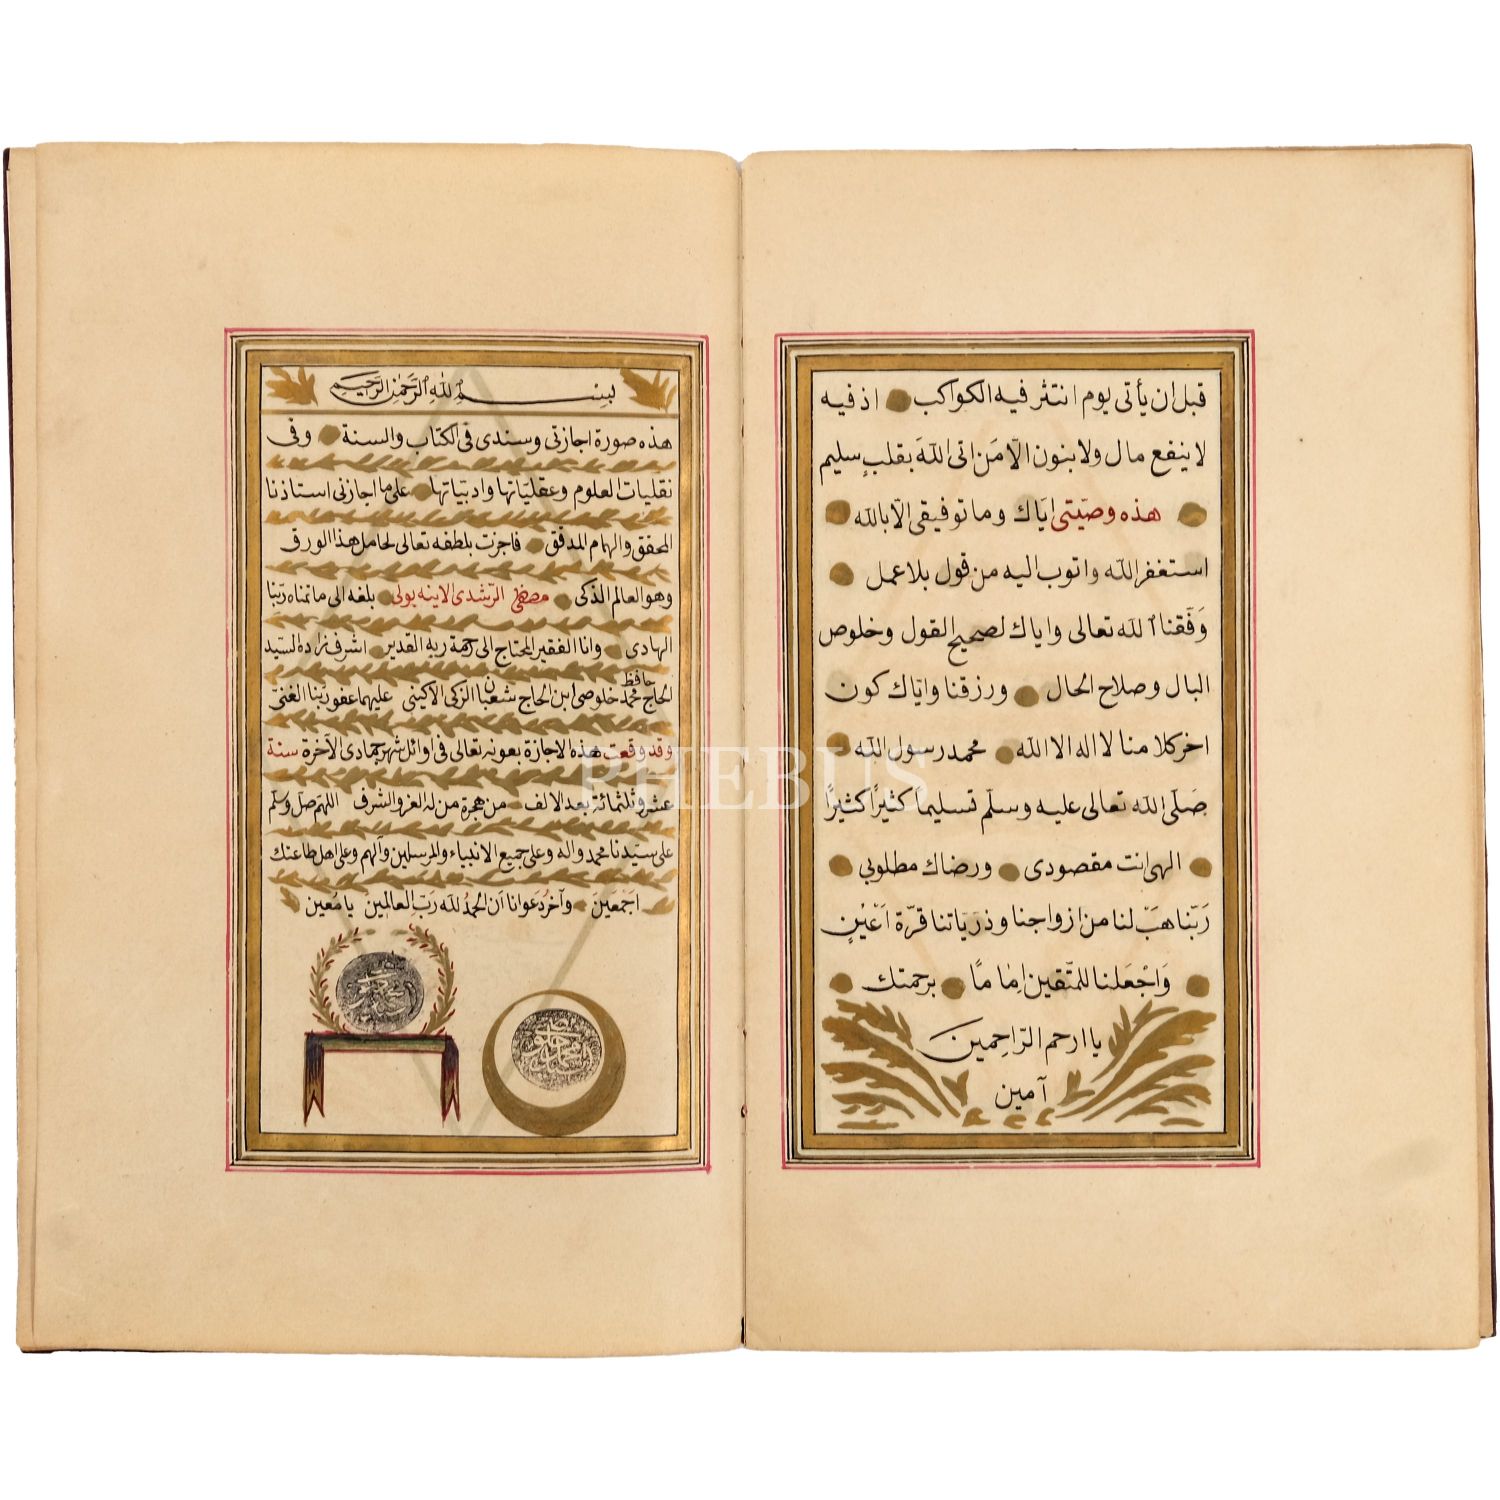 قبل ان يأتى يوم انتثر فيه الكواكب اذ فيه
لا ينفع مال ولا بنون الّا من اتى اللّه بقلبٍ سليم
هذه وصيّتى ايّاك وما توفيقى الّا باللّه
استغفر اللّه واتوب اليه من قول بلا عمل
وَفّقنا اللّه تعالى واياك لصحيح القول وخلوص
البال وصلاح الحال ورزقنا وايّاك كون
اخر كلامنا لا اله الا اللّه محمد رسول اللّه
صَلّى اللّه تعالى عليه وسلّم تسليماً كثيرًا كثيرًا
الهى انت مقصودى ورضاك مطلوبي
رَبّنا هَبْ لنا من ازواجنا وذرّيّاتنا قرّة اَعْيُنٍ
وَاجْعَلنا للمتّقين اِمامًا برحمتك
يا ارحم الرّاحِمينَ
آمين
بِسْمِ اللّٰهِ الرَّحْمٰنِ الرَّحِيمِ
هذه صورة اجازتى وسندى فى الكتاب والسنة وفى
نقليات العلوم وعقليّاتها وادبيّاتها على ما اجازنى استاذنا
المحقق والهام المدقق فاجزت بلطفه تعالى لحامل هذا الورق
وهو العالم الذكى مصطفى الرّشدى الاينه بولى بلغه الى ما تمناه ربّنا
الهادى وانا الفقير المحتاج الى رحمة ربه القدير اشرف زاده السّيد
الحاج حافظ محمد خلوصى ابن الحاج شعبان الزكى الاكينى عليهما عفو ربّنا الغنىّ
وقد وقعت هذه الاجازة بعونه تعالى فى اوائل شهر جمادى الآخرة سنة
عشر وثلثمائة بعد الالف من هجرة من له العزّ والشرف اللّهمّ صلّ وسلّم
على سيّدنا محمد واله وعلى جميع الانبياء والمرسلين وآلهم وعلى اهل طاعتك
اجمَعين وآخر دَعوانا اَن الحمدُ للّه رَبّ العالمين يا مُعين
PHEBUS